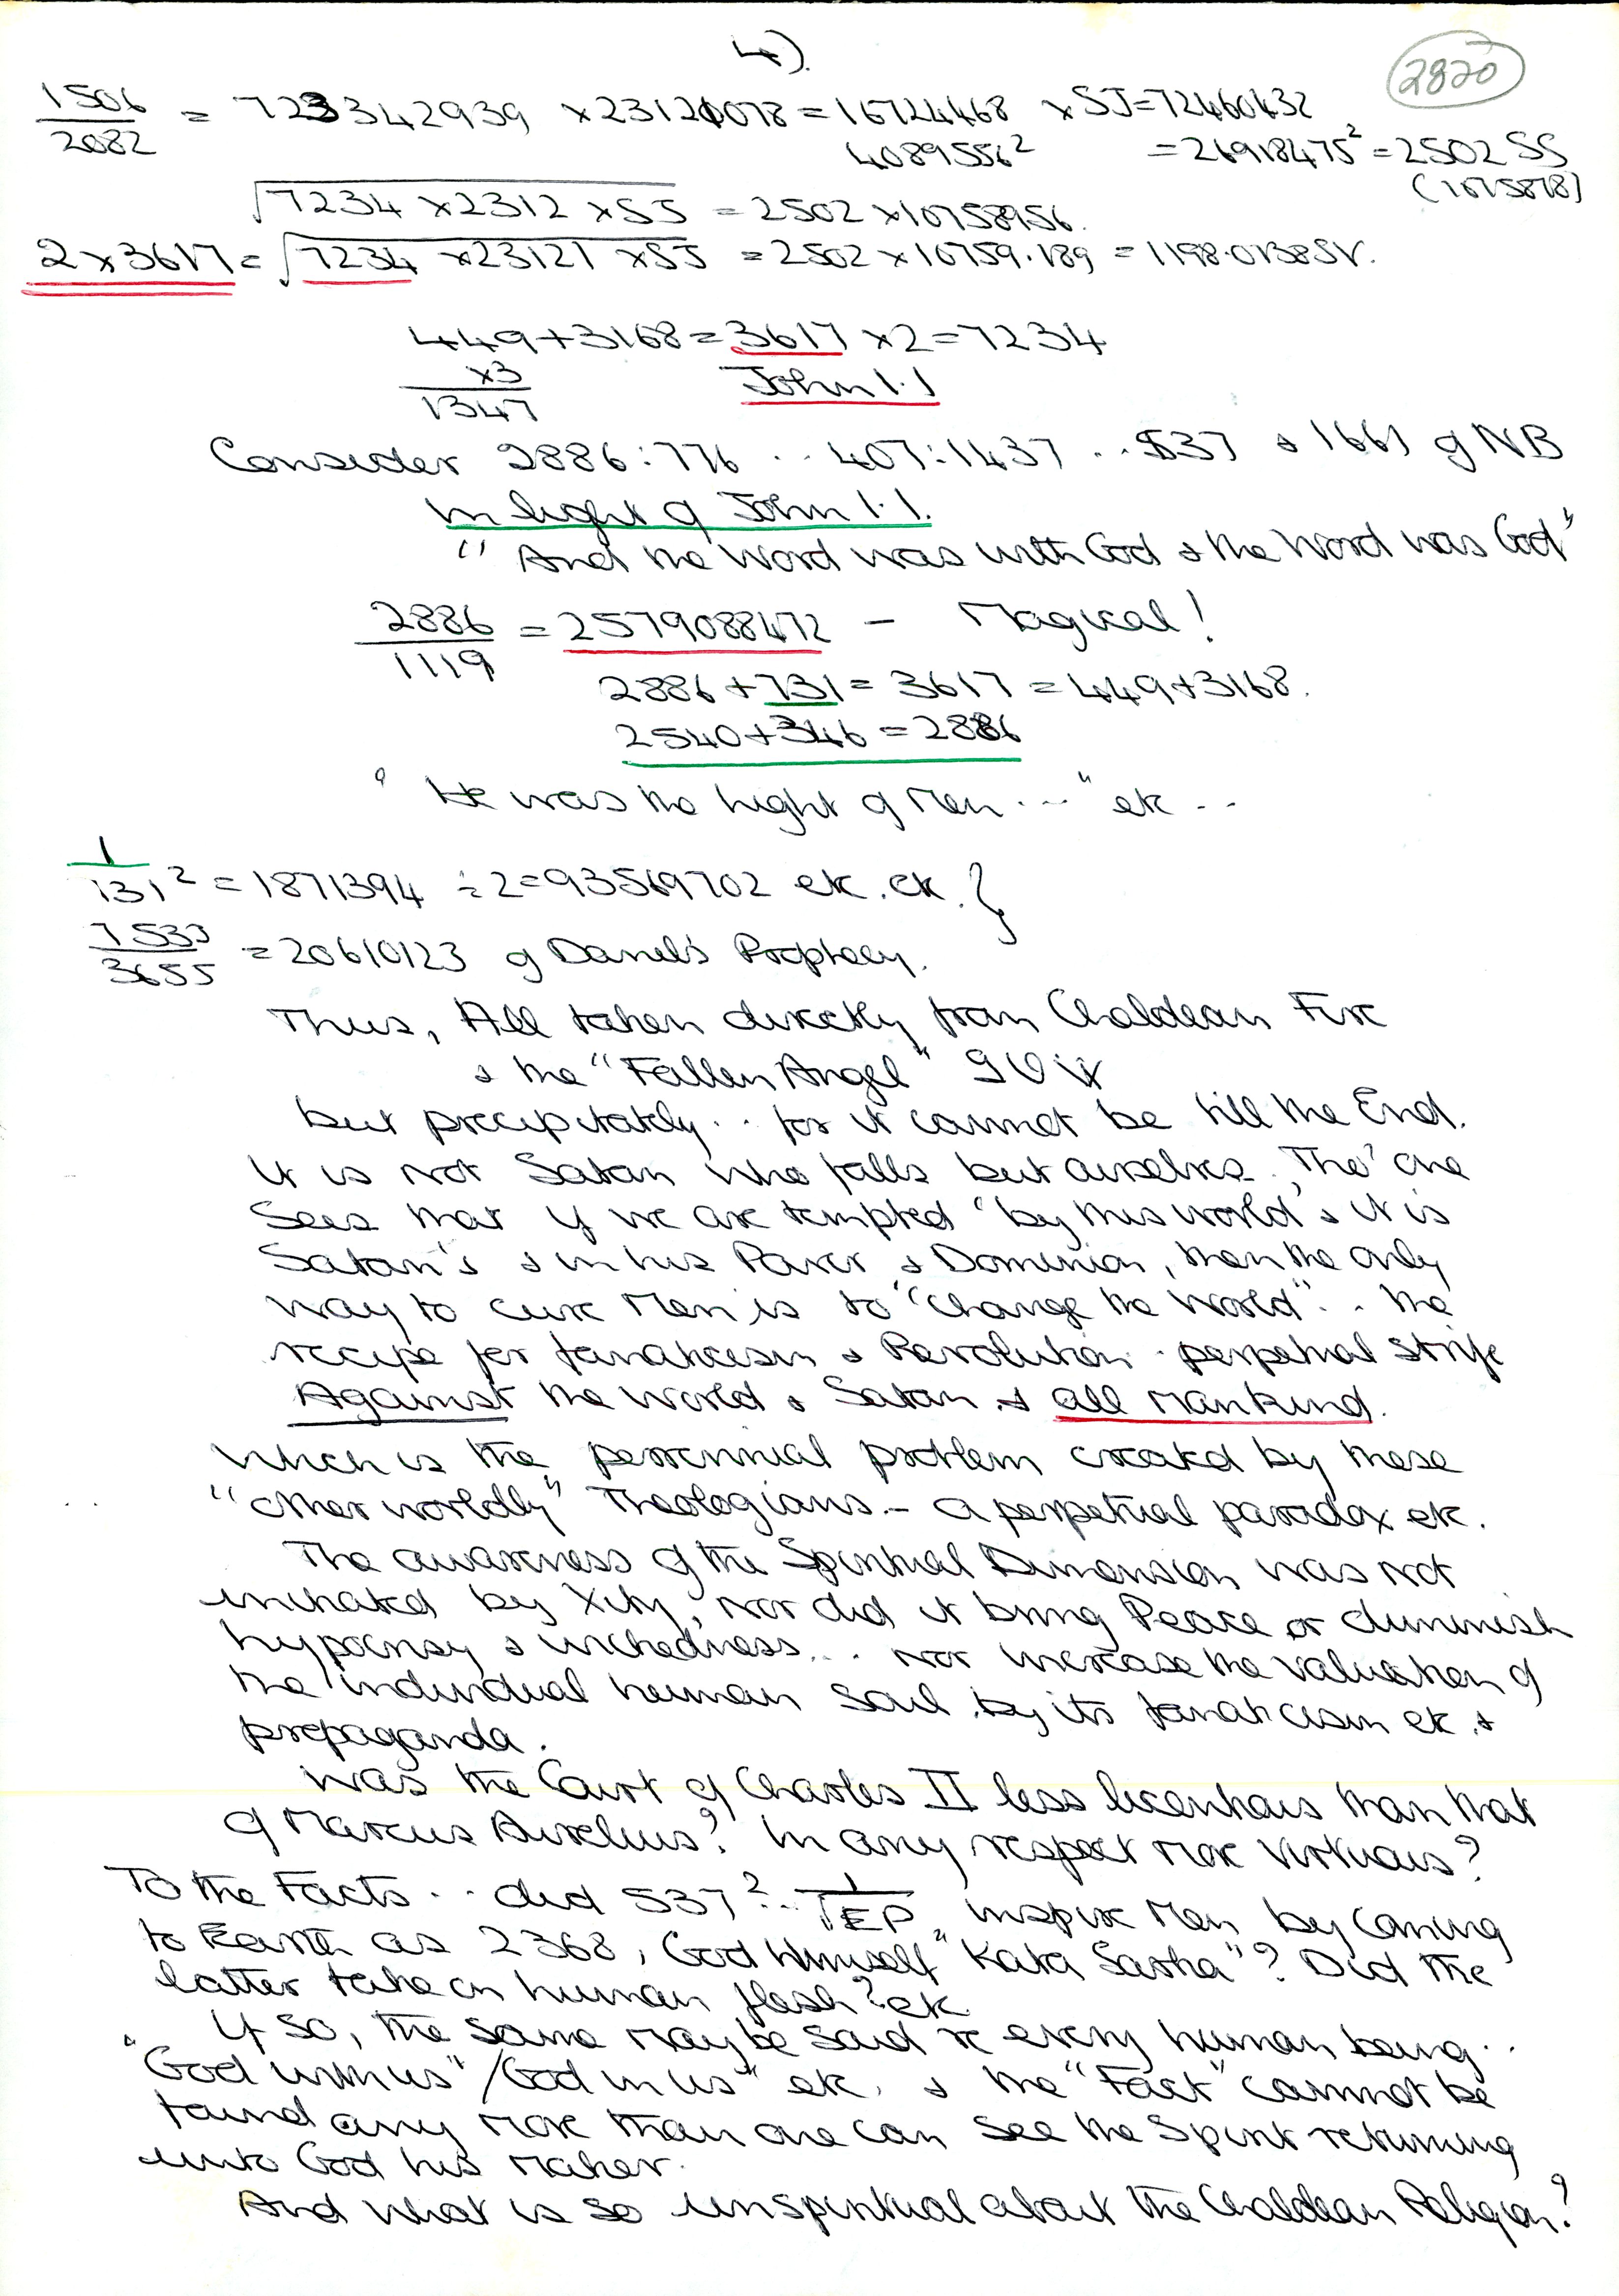 4).
2820
1506/2082 = 7233342939 x23121078 = 16724468 xSJ=72460432
4089556² =26918475²=2502 SS
(1075878)
√7234 x2312 xSJ = 2502 x10758956.
2x3617 = √7234 x23121 xSJ = 2502 x10759.189 = 1198.01385V.
449+3168=3617 x2=7234
x3
1347
John 1.1
Consider 2886:776 .. 407:1437 .. 537 & 1661 of NB
In light of John 1.1.
"And the Word was with God & the Word was God"
2886/1119 = 2579088472 – Magical!
2886+731 = 3617 = 449+3168.
2540+346 = 2886
"He was the light of Men ..." etc ..
1/731² = 1871394 ÷2=93569702 etc. etc. }
7533/3655 = 20610123 of Daniel's Prophecy.
Thus, All taken directly from Chaldean Fire
& the "Fallen Angel"
but precipitately .. for it cannot be till the End.
It is not Satan who falls but ourselves. Tho' one
Sees that if we are tempted "by this world" & it is
Satan's & in his Power & Dominion, then the only
way to cure Men is to "Change the World" .. the
recipe for fanaticism & Revolution . perpetual strife
Against the world & Satan & all Mankind.
Which is the perennial problem created by these
"other worldly" Theologians – a perpetual paradox etc.
The awareness of the Spiritual Dimension was not
initiated by Xity, nor did it bring Peace or diminish
hypocrisy & wickedness ... Nor increase the valuation of
the individual human soul by its fanaticism etc. &
propaganda.
Was the Court of Charles II less licentious than that
of Marcus Aurelius? In any respect more virtuous?
To the Facts .. did 537² .. 1/√EP, inspire Men by coming
to Earth as 2368, God Himself "Kata Sarka"? Did the
latter take on human flesh? etc
If so, the same may be said re every human being ..
"God with us"/"God in us" etc. & the "Fact" cannot be
found any more than one can see the Spirit returning
unto God his Maker.
And what is so unspiritual about the Chaldean Religion?